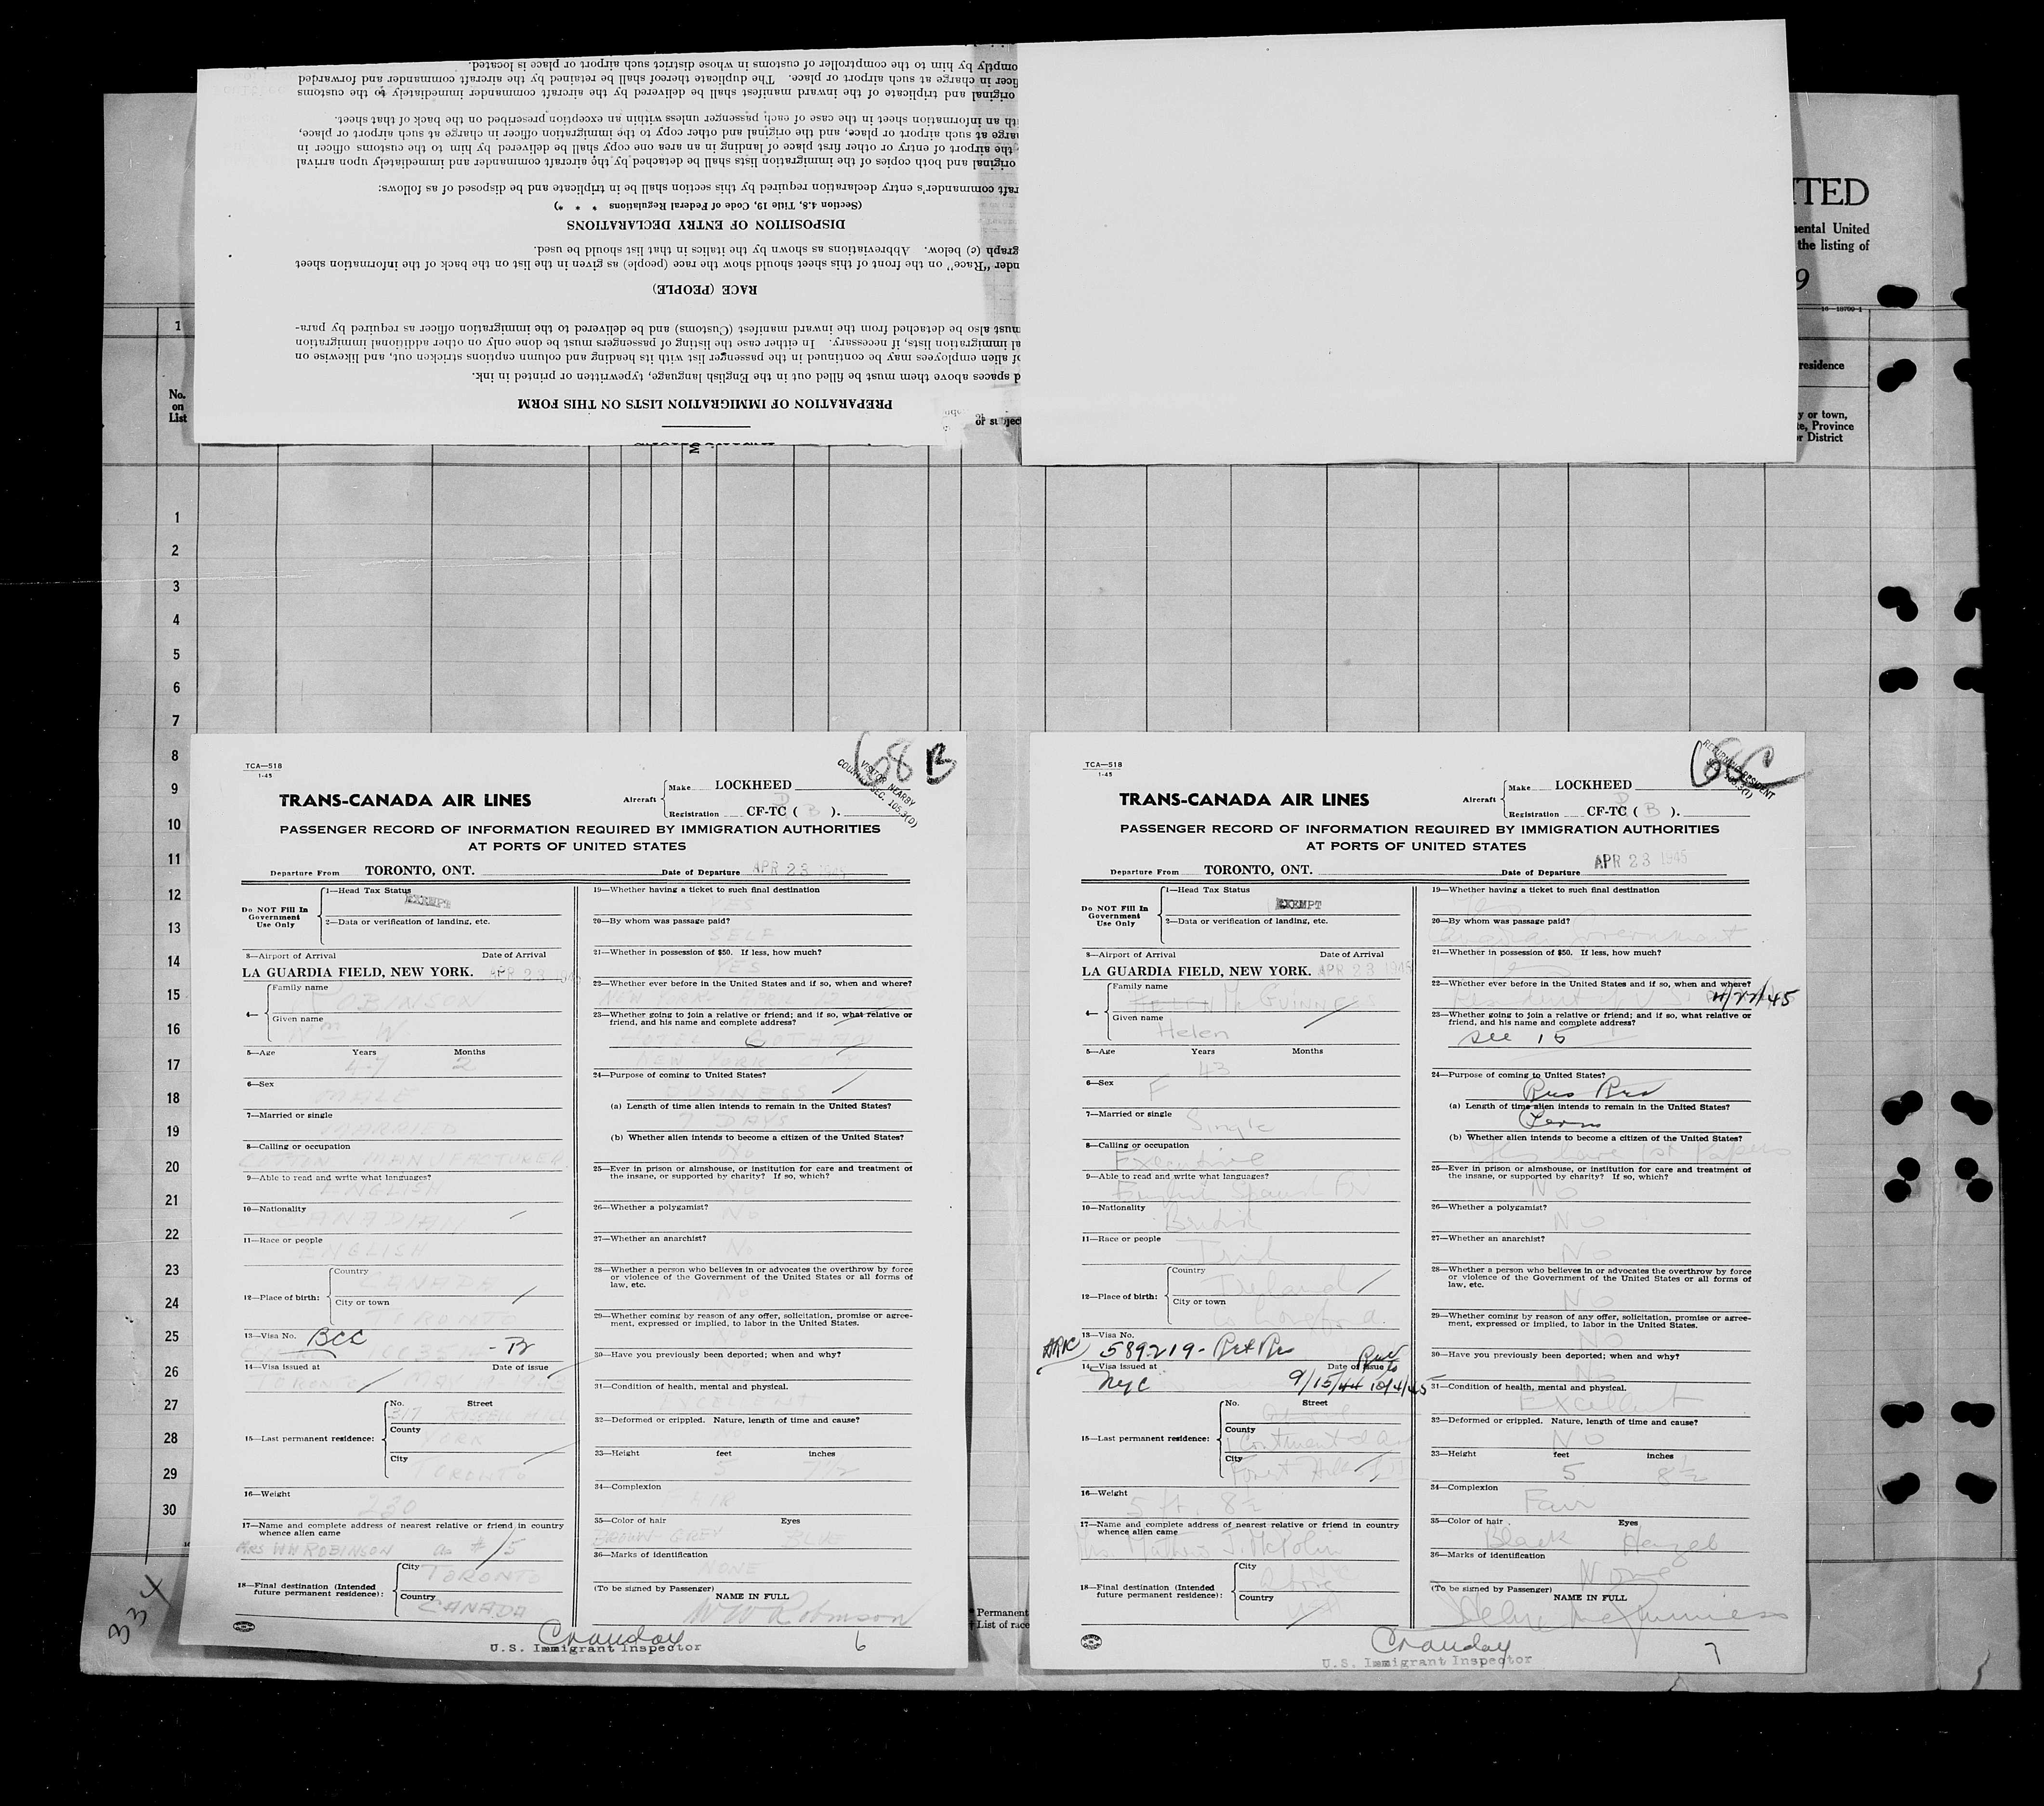 omptly by him to the comptroller of customs in whose district such airport or place is located.
ficer in charge at such airport or place. The duplicate thereof shall be retained by the aircraft commander and forwarded
original and triplicate of the inward manifest shall be delivered by the aircraft commander immediately to the customs
th an information sheet in the case of each passenger unless within an exception prescribed on the back of that sheet.
arge at such airport or place, and the original and other copy to the immigration officer in charge at such airport or place,
the airport of entry or other first place of landing in an area one copy shall be delivered by him to the customs officer in
original and both copies of the immigration lists shall be detached by the aircraft commander and immediately upon arrival
raft commander's entry declaration required by this section shall be in triplicate and be disposed of as follows:
(Section 4.8, Title 19, Code of Federal Regulations * * *)
DISPOSITION OF ENTRY DECLARATIONS
graph (c) below. Abbreviations as shown by the italics in that list should be used.
nder "Race" on the front of this sheet should show the race (people) as given in the list on the back of the information sheet
RACE (PEOPLE)
must also be detached from the inward manifest (Customs) and be delivered to the immigration officer as required by para-
al immigration lists, if necessary. In either case the listing of passengers must be done only on other additional immigration
of alien employees may be continued in the passenger list with its heading and column captions stricken out, and likewise on
d spaces above them must be filled out in the English language, typewritten or printed in ink.
PREPARATION OF IMMIGRATION LISTS ON THIS FORM
ITED
ental United
the listing of
9
16—18700-1
residence
y or town,
te, Province
or District
1
No.
on
List
or subjec
1
2
3
4
5
6
7
8
9
10
11
12
13
14
15
16
17
18
19
20
21
22
23
24
25
26
27
28
29
30
334
* Permanent
† List of race
TCA—518
1-45
68 B
VISITOR NEARBY
COUNTRY SEC. 105.3(D)
TRANS-CANADA AIR LINES
Aircraft
Make LOCKHEED
Registration CF-TC ( B ).
PASSENGER RECORD OF INFORMATION REQUIRED BY IMMIGRATION AUTHORITIES
AT PORTS OF UNITED STATES
Departure From TORONTO, ONT. Date of Departure APR 23 1945
Do NOT Fill In
Government
Use Only
1—Head Tax Status
EXEMPT
2—Data or verification of landing, etc.
3—Airport of Arrival Date of Arrival
LA GUARDIA FIELD, NEW YORK. APR 23 1945
4—
Family name
ROBINSON
Given name
W
5—Age Years Months
47 2
6—Sex
MALE
7—Married or single
MARRIED
8—Calling or occupation
MANUFACTURER
9—Able to read and write what languages?
ENGLISH
10—Nationality
CANADIAN
11—Race or people
ENGLISH
12—Place of birth:
Country
CANADA
City or town
TORONTO
13—Visa No. BCC
14—Visa issued at Date of issue
TORONTO
15—Last permanent residence:
No. Street
317 RUSSELL HILL
County
YORK
City
TORONTO
16—Weight
230
17—Name and complete address of nearest relative or friend in country
whence alien came
MRS WW ROBINSON as # 15
18—Final destination (Intended
future permanent residence):
City TORONTO
Country CANADA
19—Whether having a ticket to such final destination
YES
20—By whom was passage paid?
SELF
21—Whether in possession of $50. If less, how much?
YES
22—Whether ever before in the United States and if so, when and where?
NEW YORK APRIL 12 1945
23—Whether going to join a relative or friend; and if so, what relative or
friend, and his name and complete address?
HOTEL GOTHAM
NEW YORK
24—Purpose of coming to United States?
BUSINESS
(a) Length of time alien intends to remain in the United States?
DAYS
(b) Whether alien intends to become a citizen of the United States?
No
25—Ever in prison or almshouse, or institution for care and treatment of
the insane, or supported by charity? If so, which?
No
26—Whether a polygamist?
No
27—Whether an anarchist?
No
28—Whether a person who believes in or advocates the overthrow by force
or violence of the Government of the United States or all forms of
law, etc.
No
29—Whether coming by reason of any offer, solicitation, promise or agree-
ment, expressed or implied, to labor in the United States.
30—Have you previously been deported; when and why?
31—Condition of health, mental and physical.
EXCELLENT
32—Deformed or crippled. Nature, length of time and cause?
33—Height feet inches
5 7 1/2
34—Complexion
35—Color of hair Eyes
BROWN GREY BLUE
36—Marks of identification
NONE
(To be signed by Passenger)
NAME IN FULL
W W Robinson
Crauday
U.S. Immigrant Inspector
6
TCA—518
1-45
68C
RETURNING RESIDENT
TRANS-CANADA AIR LINES
Aircraft
Make LOCKHEED
Registration CF-TC ( B ).
PASSENGER RECORD OF INFORMATION REQUIRED BY IMMIGRATION AUTHORITIES
AT PORTS OF UNITED STATES
Departure From TORONTO, ONT. Date of Departure APR 23 1945
Do NOT Fill In
Government
Use Only
1—Head Tax Status
EXEMPT
2—Data or verification of landing, etc.
3—Airport of Arrival Date of Arrival
LA GUARDIA FIELD, NEW YORK. APR 23 1945
4—
Family name
Mc GUINNESS
Given name
Helen
5—Age Years Months
43
6—Sex
F
7—Married or single
Single
8—Calling or occupation
Executive
9—Able to read and write what languages?
English Spanish
10—Nationality
British
11—Race or people
Irish
12—Place of birth:
Country
Ireland
City or town
Co Longford
13—Visa No.
589219 - Ret Res
14—Visa issued at Date of issue
NYC 9/15/44 10/4/45
15—Last permanent residence:
No. Street
County
Continental Ave
City
Forest Hills
16—Weight
5 ft. 8½
17—Name and complete address of nearest relative or friend in country
whence alien came
18—Final destination (Intended
future permanent residence):
City NYC
Country
19—Whether having a ticket to such final destination
Yes
20—By whom was passage paid?
Government
21—Whether in possession of $50. If less, how much?
Yes
22—Whether ever before in the United States and if so, when and where?
Resident of U.S. 4/22/45
23—Whether going to join a relative or friend; and if so, what relative or
friend, and his name and complete address?
See 15
24—Purpose of coming to United States?
Res
(a) Length of time alien intends to remain in the United States?
Perm
(b) Whether alien intends to become a citizen of the United States?
Yes have 1st Papers
25—Ever in prison or almshouse, or institution for care and treatment of
the insane, or supported by charity? If so, which?
No
26—Whether a polygamist?
No
27—Whether an anarchist?
No
28—Whether a person who believes in or advocates the overthrow by force
or violence of the Government of the United States or all forms of
law, etc.
No
29—Whether coming by reason of any offer, solicitation, promise or agree-
ment, expressed or implied, to labor in the United States.
No
30—Have you previously been deported; when and why?
No
31—Condition of health, mental and physical.
Excellent
32—Deformed or crippled. Nature, length of time and cause?
No
33—Height feet inches
5 8½
34—Complexion
Fair
35—Color of hair Eyes
Black Hazel
36—Marks of identification
None
(To be signed by Passenger)
NAME IN FULL
Helen McGuinness
Crauday
U.S. Immigrant Inspector
7